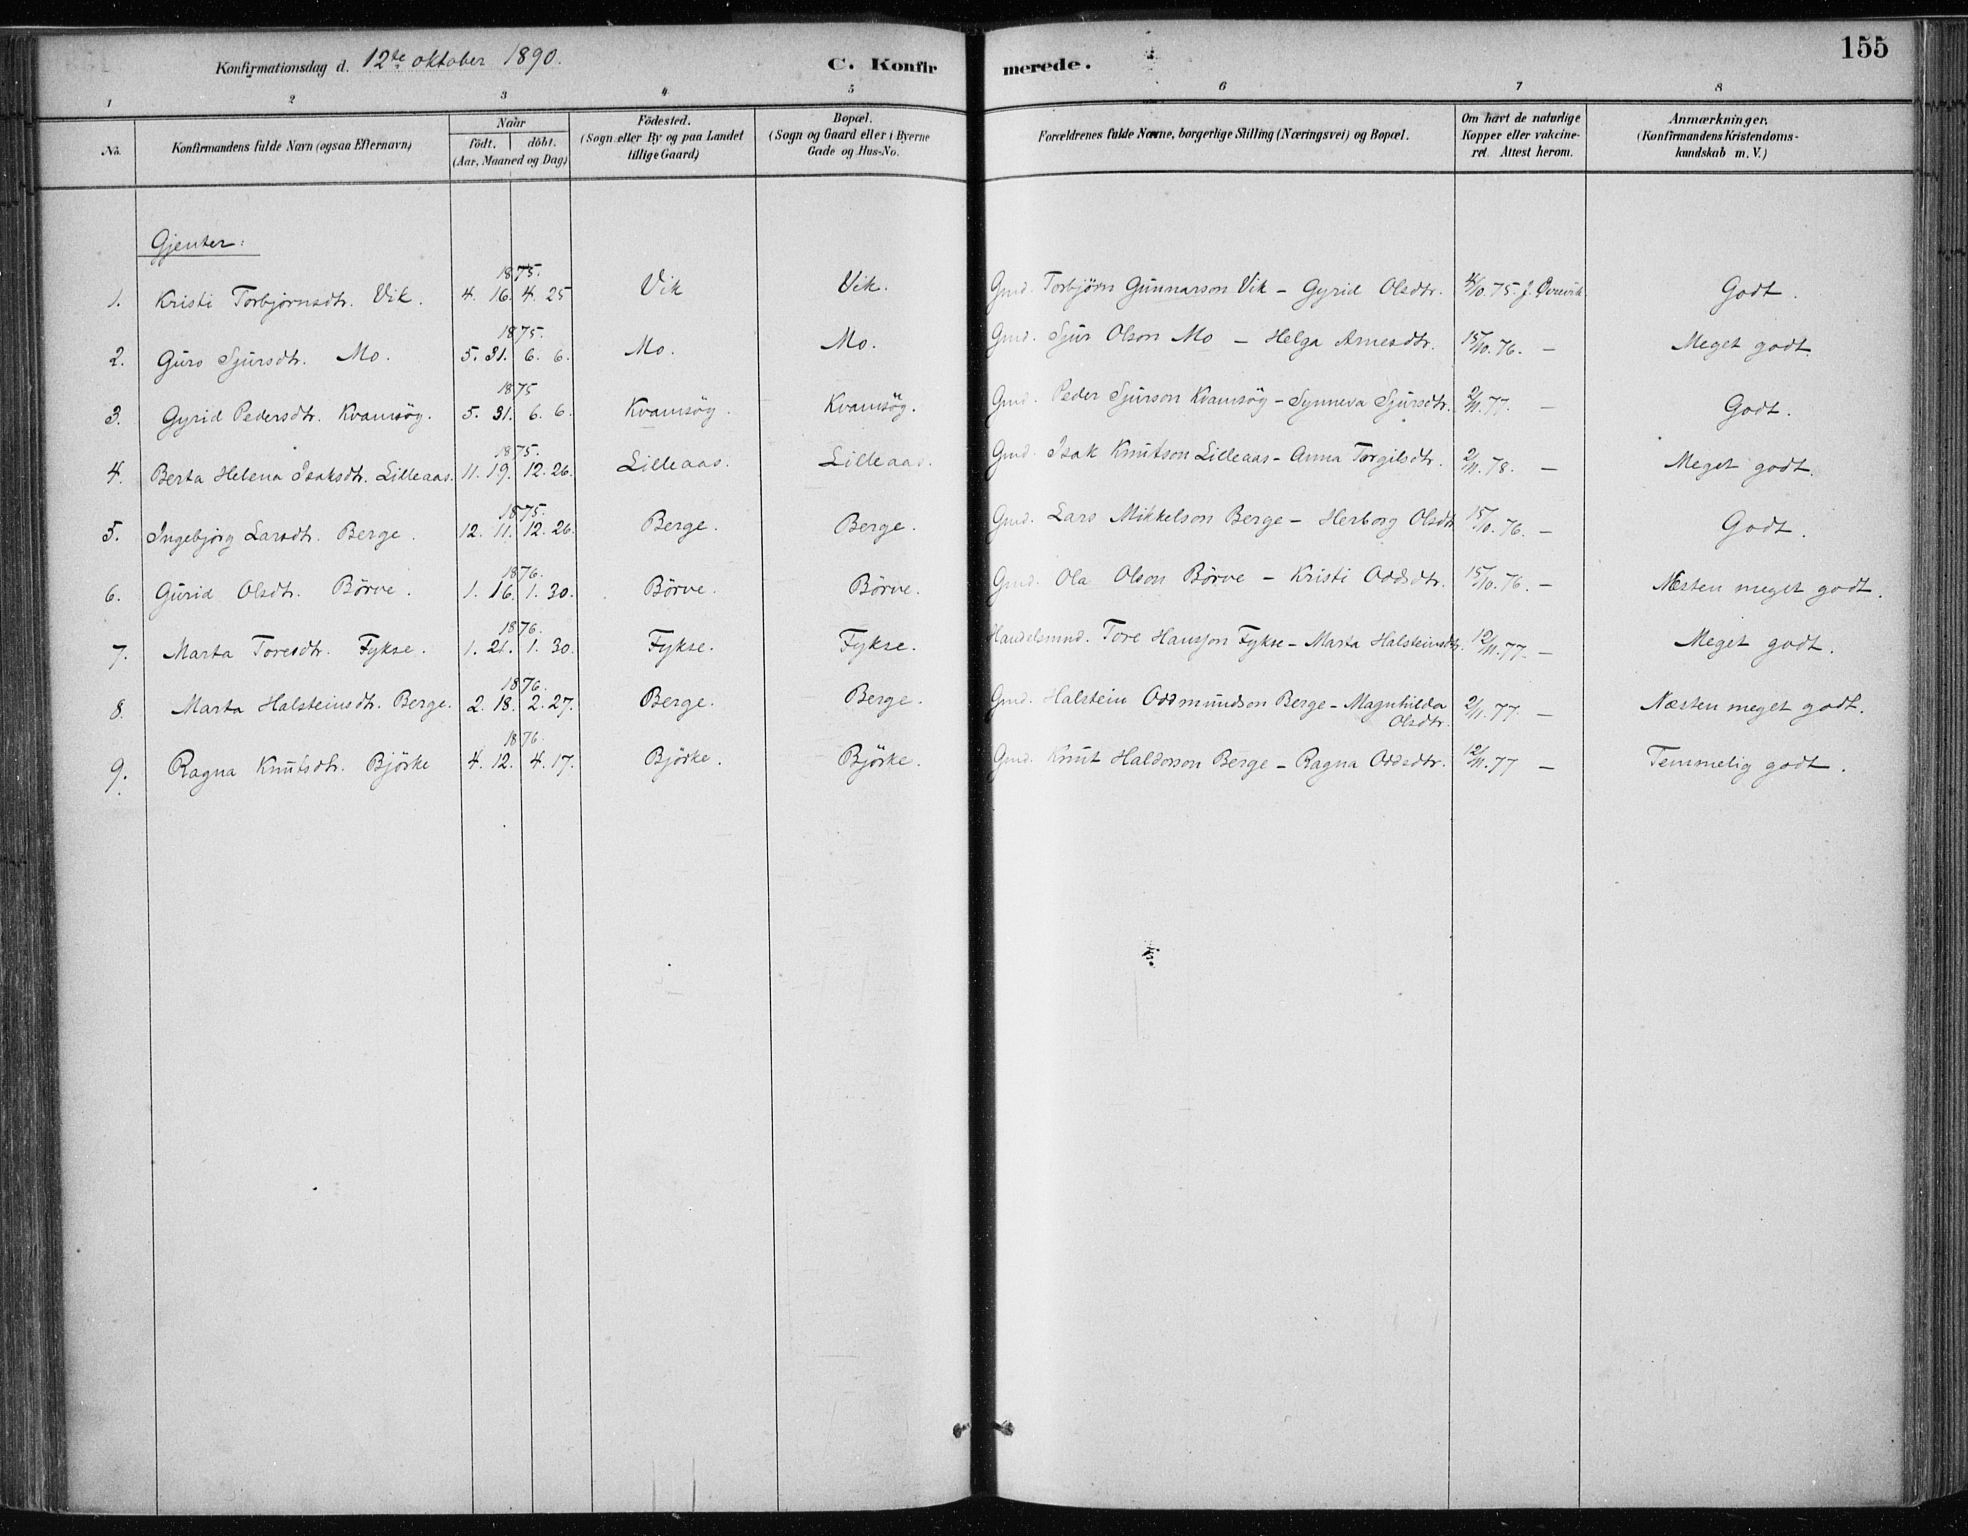 155
Konfirmationsdag d. 12te oktober 1890. C. Konfirmerede.
1 2 3 4 5 6 7 8
No. Konfirmandens fulde Navn (ogsaa Efternavn) Naar født. døbt. (Aar, Maaned og Dag) Födested. (Sogn eller By og paa Landet tillige Gaard) Bopæl. (Sogn og Gaard eller i Byerne Gade og Hus-No. Forældrenes fulde Navne, borgerlige Stilling (Næringsvei) og Bopæl. Om havt de naturlige Kopper eller vakcineret. Attest herom. Anmærkninger. (Konfirmandens Kristendomskundskab m. V.)
Gjenter:
1875.
1. Kristi Torbjörnsdtr. Vik. 4. 16. 4. 25 Vik Vik. Gmd. Torbjörn Gunnarson Vik - Gyrid Olsdtr. 4/10. 75. J. Godt.
1875.
2. Guro Sjursdtr. Mo. 5. 31. 6. 6. Mo. Mo. Gmd. Sjur Olson Mo - Helga Arnesdtr. 15/10. 76. - Meget godt.
1875
3. Gyrid Pedersdtr. Kvamsög. 5. 31. 6. 6. Kvamsög. Kvamsög. Gmd. Peder Sjurson Kvamsög - Synneva Sjursdtr. 2/11. 77. - Godt.
1875.
4. Berta Helena Isaksdtr. Lilleaas. 11. 19. 12. 26. Lilleaas. Lilleaas. Gmd. Isak Knutson Lilleaas - Anna Torgilsdtr. 2/11. 78. - Meget godt.
1875.
5. Ingebjörg Larsdtr. Berge. 12. 11. 12. 26. Berge. Berge. Gmd. Lars Mikkelson Berge - Herborg Olsdtr 15/10. 76. - Godt.
1876.
6. Gurid Olsdtr. Börve. 1. 16. 1. 30. Börve. Börve. Gmd. Ola Olson Börve - Kristi Oddsdtr. 15/10. 76. - Næsten meget godt.
1876.
7. Marta Toresdtr. Fykse. 1. 21. 1. 30. Fykse. Fykse. Handelsmnd. Tore Hansson Fykse - Marta Halsteinsdtr. 12/11. 77. - Meget godt.
1876.
8. Marta Halsteinsdtr. Berge. 2. 18. 2. 27. Berge. Berge. Gmd. Halstein Oddmundson Berge - Magnhilda Olsdtr. 2/11. 77. - Næsten meget godt.
1876.
9. Ragna Knutsdtr. Björke 4. 12. 4. 17. Björke. Björke. Gmd. Knut Haldorson Berge - Ragna Oddsdtr. 12/11. 77 - Temmelig godt.